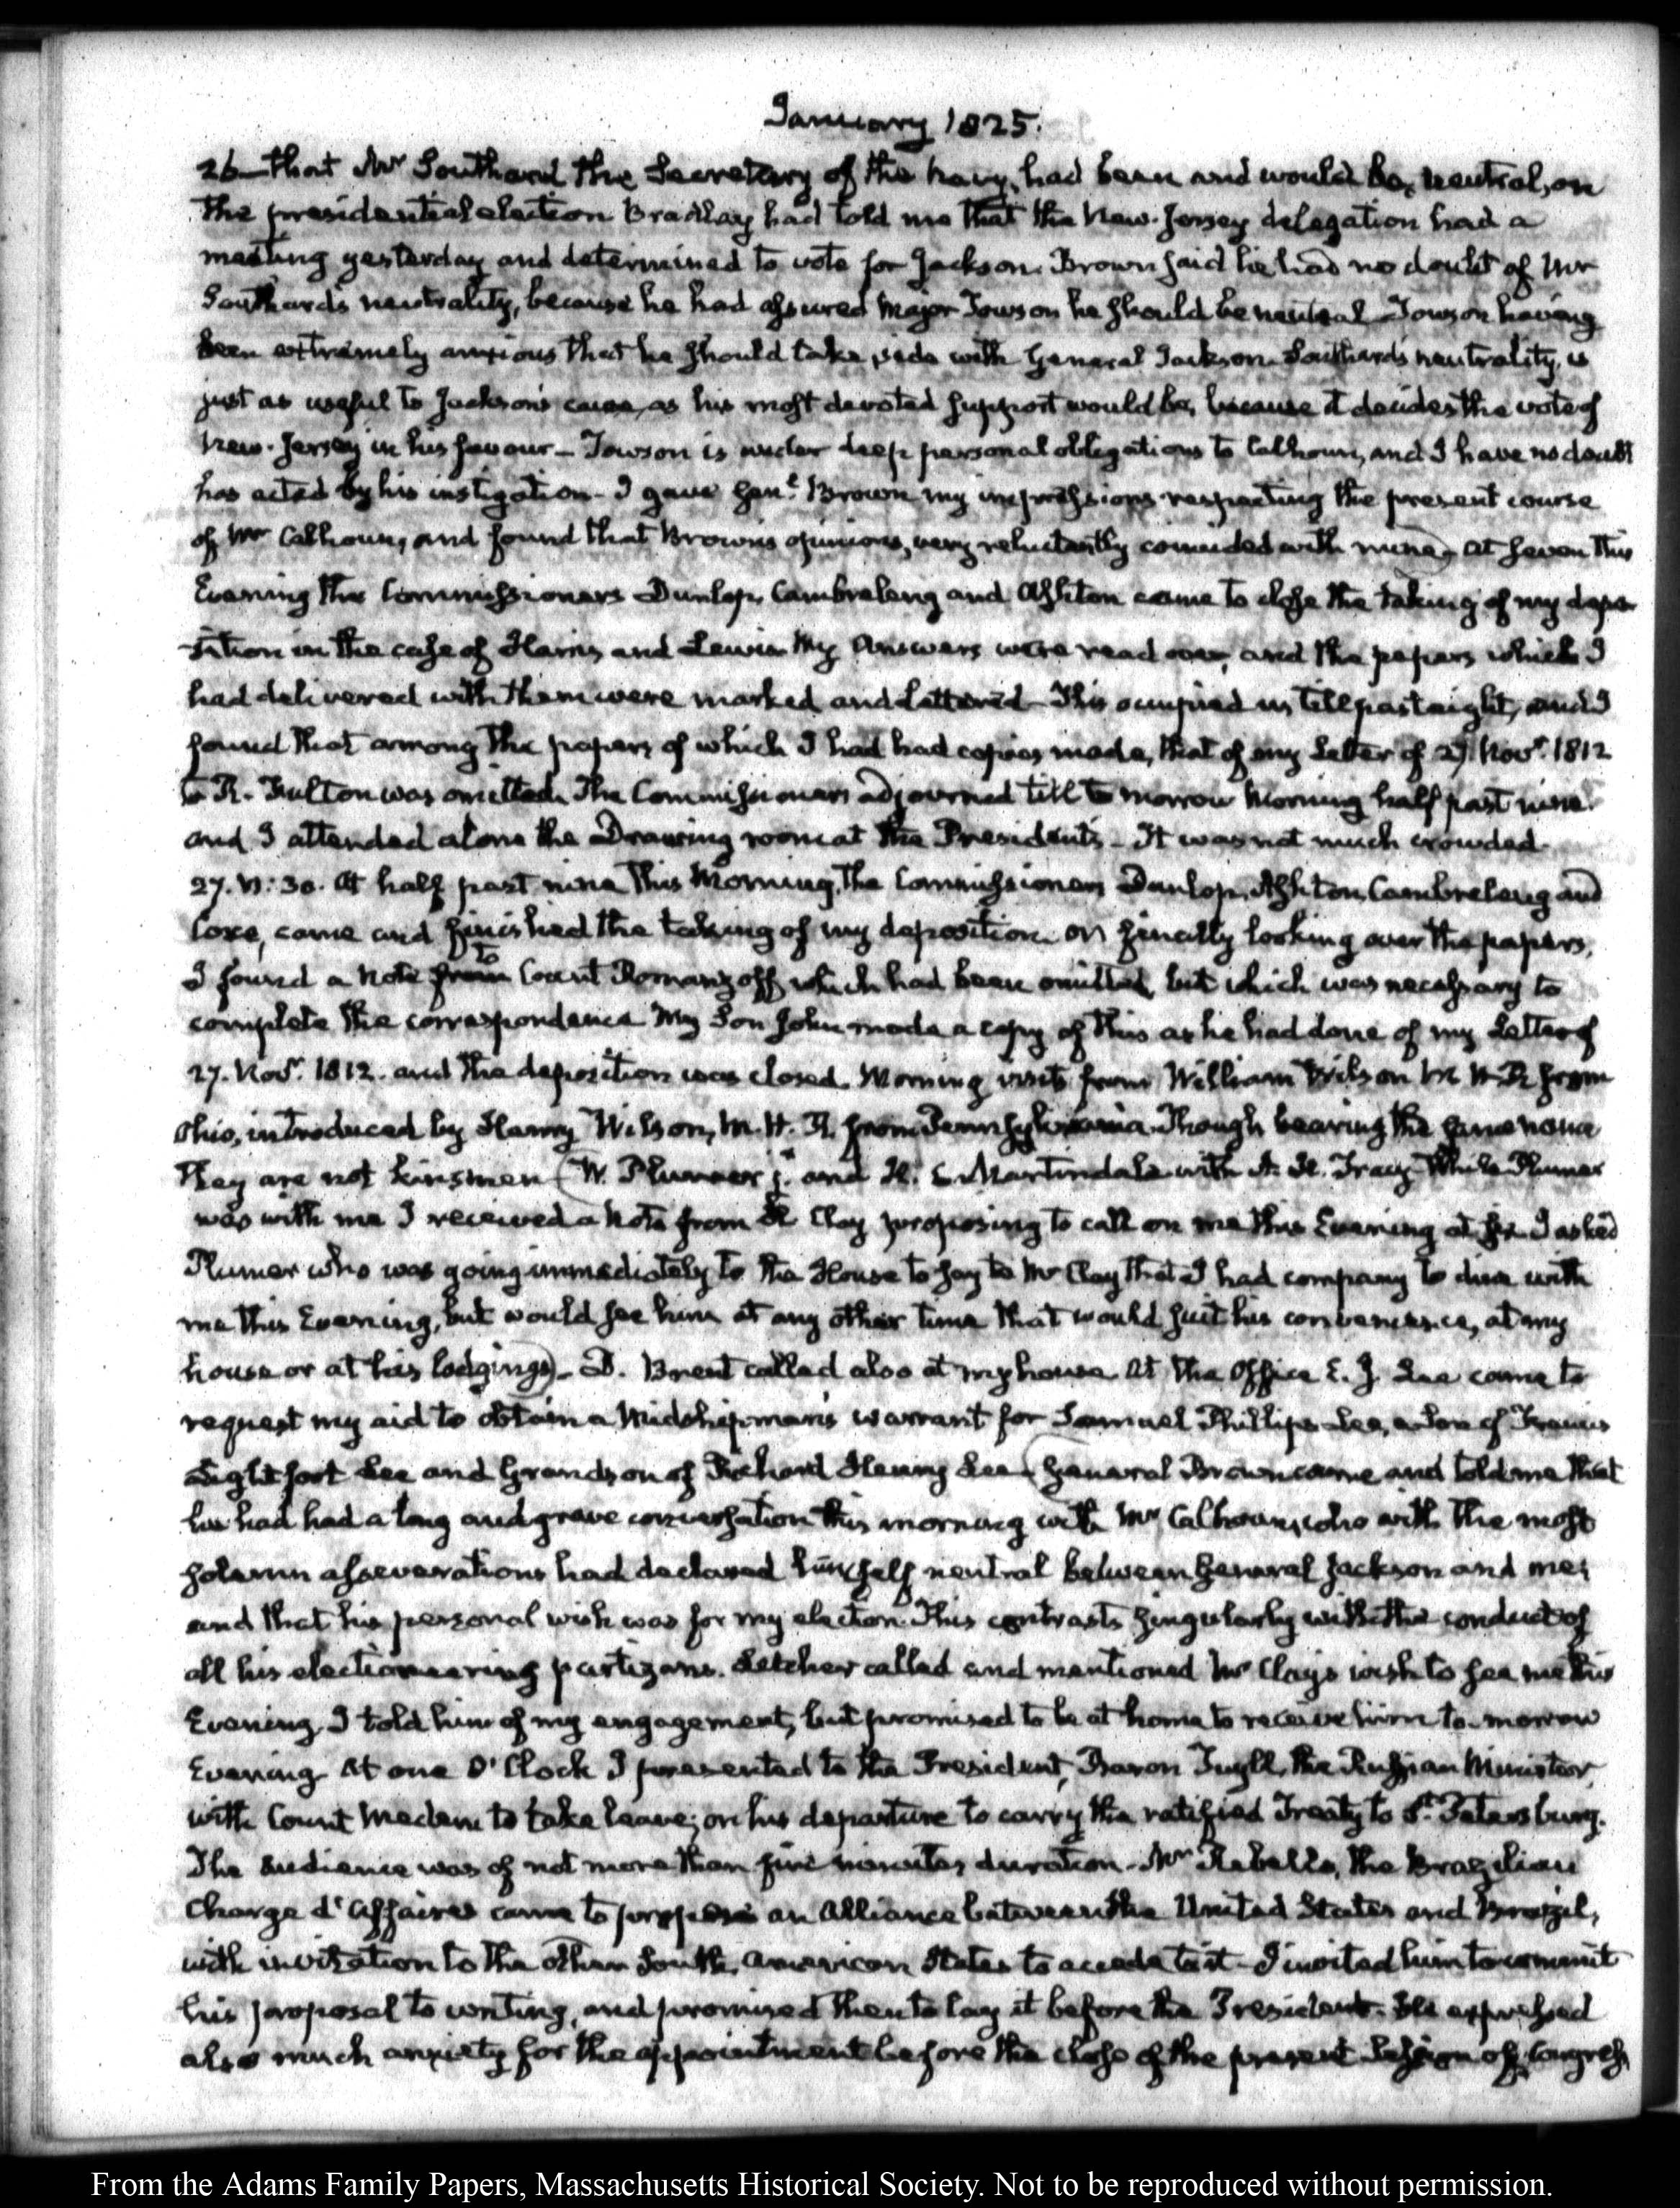 January 1825.
26— that Mr Southard the Secretary of the Navy, had been and would be, neutral, on
the presidential election. Bradley had told me that the New-Jersey delegation had a
meeting yesterday and determined to vote for Jackson. Brown said he had no doubt of Mr
Southard's neutrality, because he had assured Major Towson he should be neutral— Towson having
been extremely anxious that he should take side with General Jackson. Southard's neutrality, is
just as useful to Jackson's cause, as his most devoted support would be, because it decides the vote of
New-Jersey in his favour— Towson is under deep personal obligations to Calhoun, and I have no doubt
has acted by his instigation— I gave Genl. Brown my impressions respecting the present course
of Mr Calhoun, and found that Brown's opinions, very reluctantly coincided with mine— At seven this
Evening the Commissioners Dunlop, Cambreleng and Ashton came to close the taking of my depo-
sition in the case of Harris and Lewis. My Answers were read over, and the papers which I
had delivered with them were marked and lettered— This occupied us till past eight, and I
found that among the papers of which I had had copies made, that of my Letter of 27. Novr. 1812
to R. Fulton was omitted. The Commissioners adjourned till to-morrow Morning half past nine.
and I attended alone the Drawing room at the President's— It was not much crowded.
27. VI:30. At half past nine this Morning, the Commissioners Dunlop, Ashton, Cambreleng and
Coxe, came and finished the taking of my deposition. On finally looking over the papers,
I found a Note from to Count Romanzoff which had been omitted, but which was necessary to
complete the correspondence. My Son John made a copy of this as he had done of my Letter of
27. Novr. 1812. and the deposition was closed. Morning visits from William Wilson M. H. R. from
Ohio, introduced by Harry Wilson, M. H. R. from Pennsylvania. Though bearing the same name
they are not kinsmen— W. Plumer jr. and H. C. Martindale with A. H. Tracy. While Plumer
was with me I received a Note from H. Clay proposing to call on me this Evening at six. I asked
Plumer who was going immediately to the House to say to Mr Clay that I had company to dine with
me this Evening, but would see him at any other time that would suit his convenience, at my
house or at his lodgings— D. Brent called also at my house. At the Office E. J. Lee came to
request my aid to obtain a Midshipman's warrant for Samuel Phillips Lee, a Son of Francis
Lightfoot Lee and Grandson of Richard Henry Lee— General Brown came and told me that
he had had a long and grave conversation this morning with Mr Calhoun, who with the most
solemn asseverations had declared himself neutral between General Jackson and me;
and that his personal wish was for my election. This contrasts singularly with the conduct of
all his electioneering partizans. Letcher called and mentioned Mr Clay's wish to see me this
Evening. I told him of my engagement, but promised to be at home to receive him to-morrow
Evening. At one O'Clock I presented to the President, Baron Tuyll, the Russian Minister,
with Count Medem to take leave; on his departure to carry the ratified Treaty to St. Petersburg.
The audience was of not more than five minutes duration— Mr Rebello, the Brazilian
Charge d'Affaires came to propose an Alliance between the United States and Brazil,
with invitation to the other South American States to accede to it— I invited him to commit
his proposal to writing, and promised then to lay it before the President. He expressed
also much anxiety for the appointment before the close of the present Session of Congress
From the Adams Family Papers, Massachusetts Historical Society. Not to be reproduced without permission.